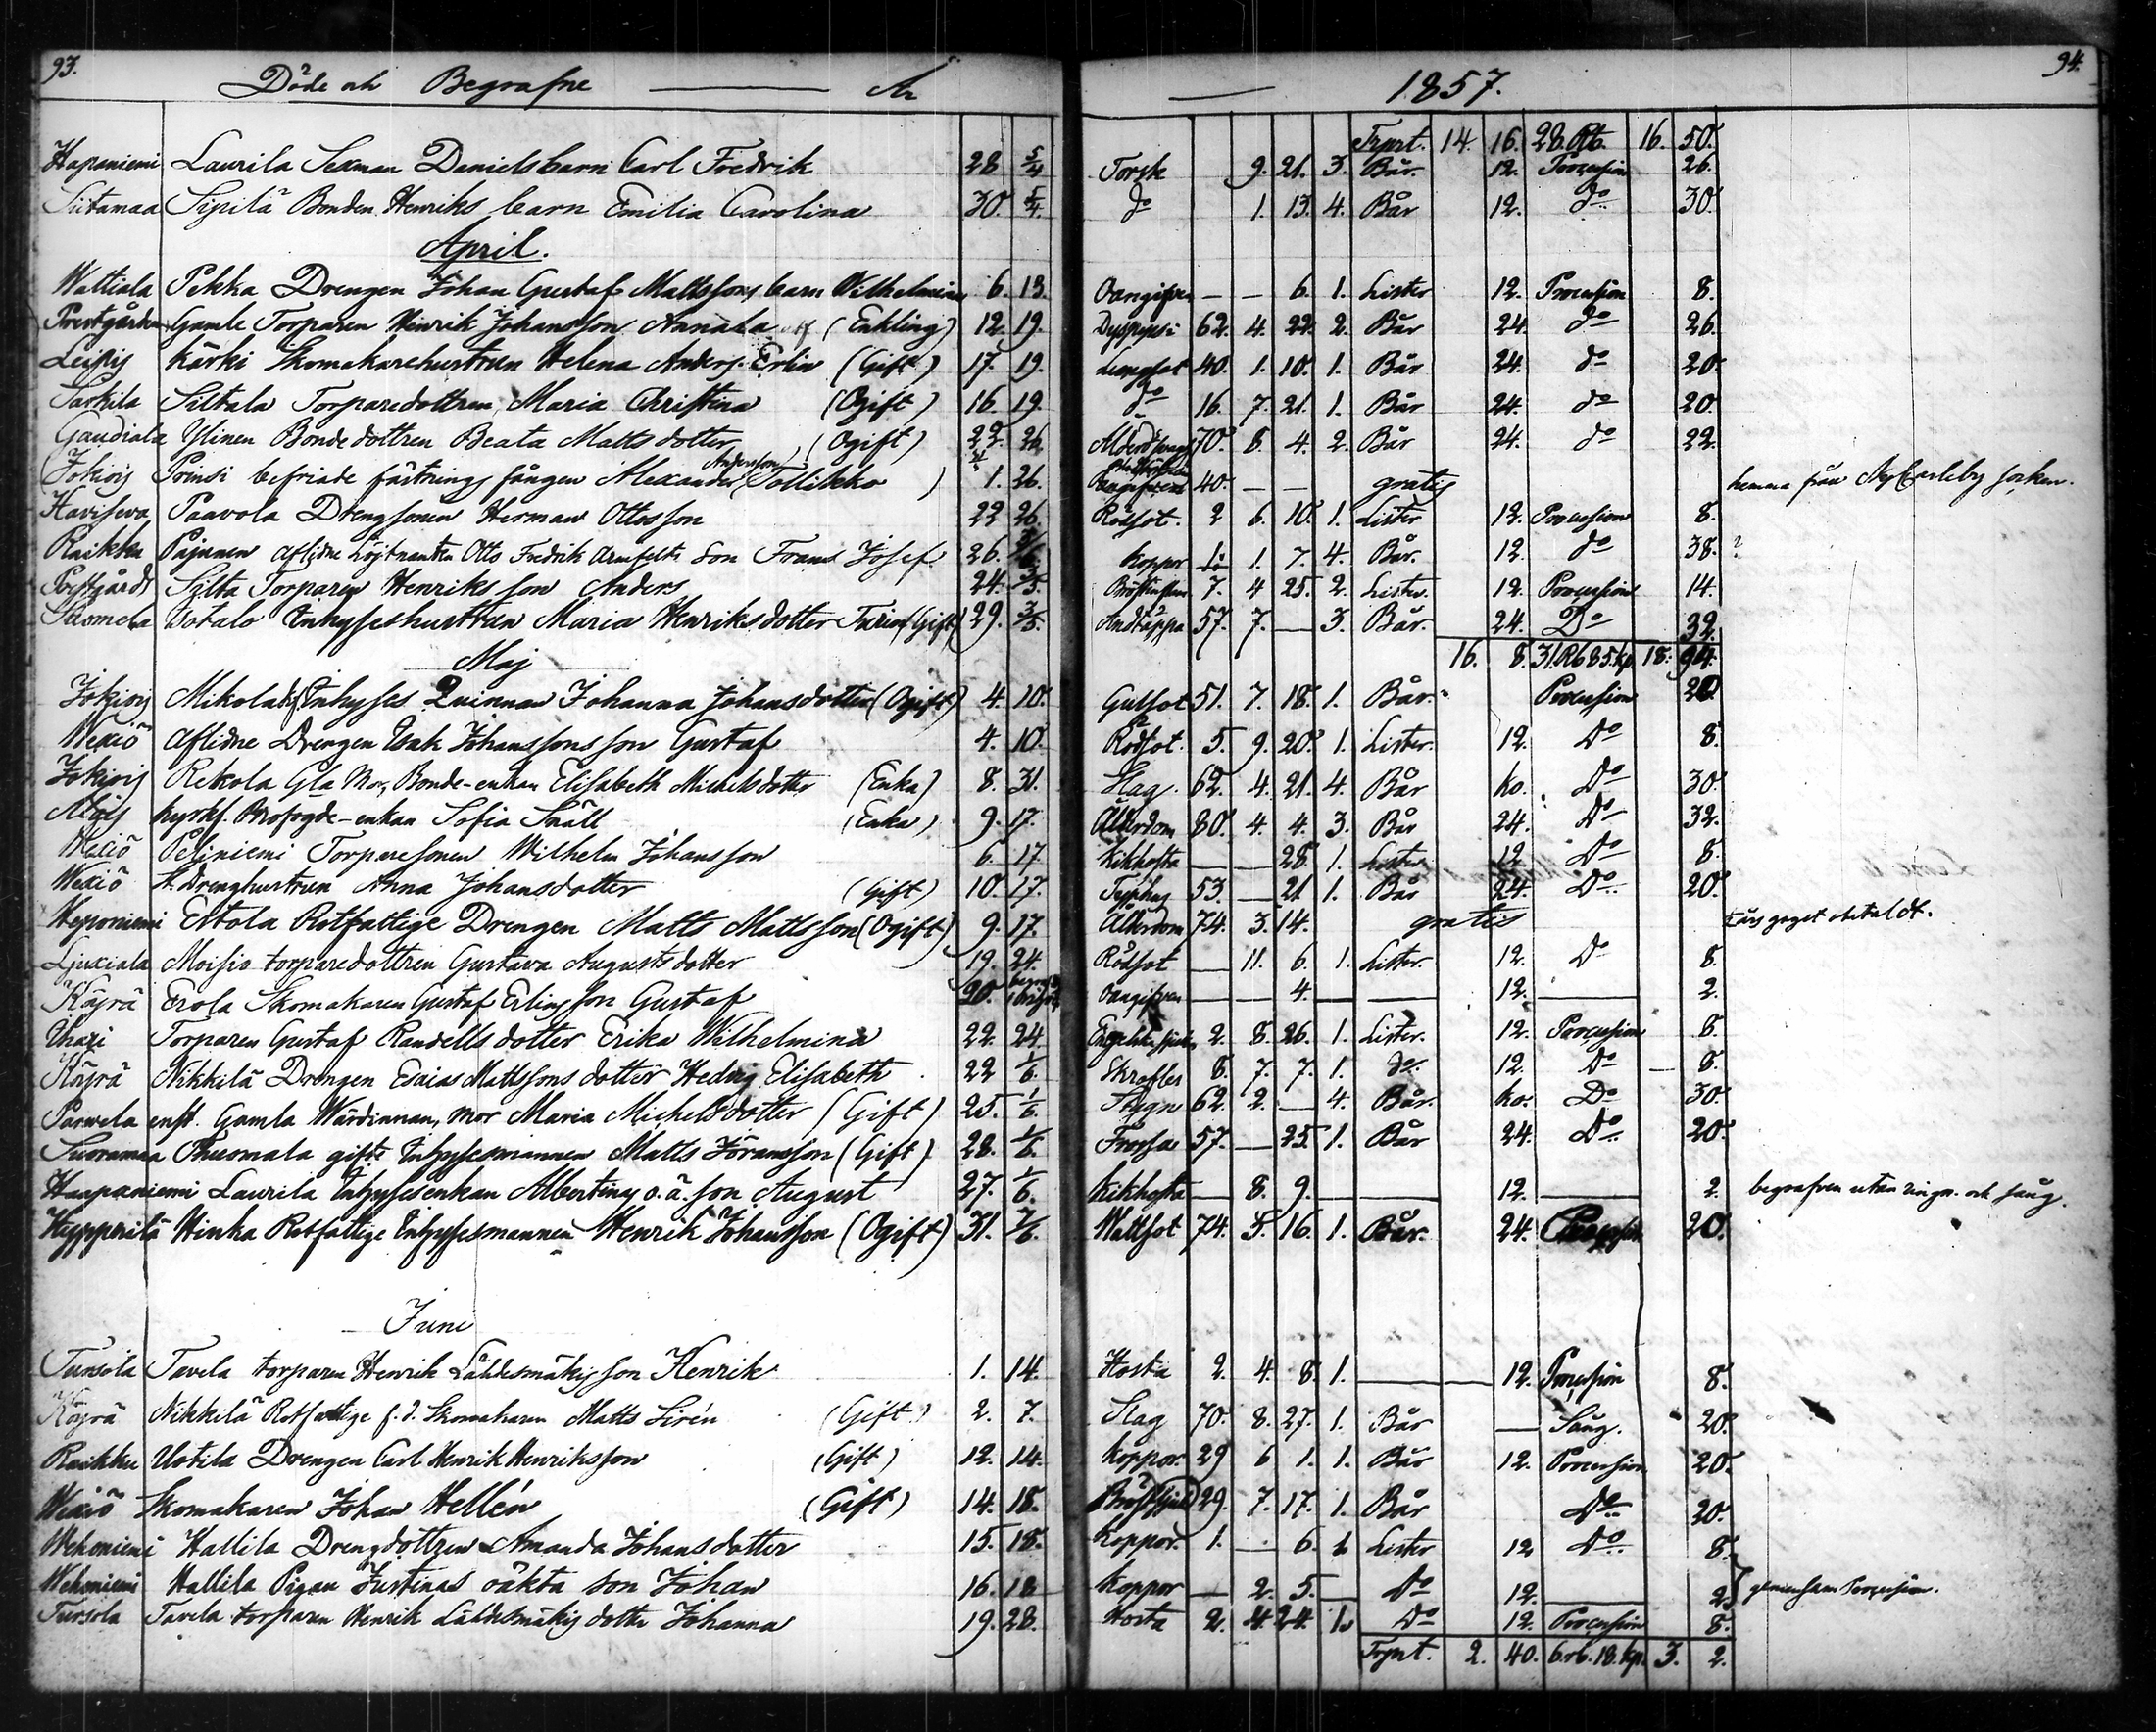 93. Döde och Begrafne — År — 1857. 94.
Trprt. 14. 16. 28. Rb. 16. 50.
Hapaniemi Laurila Sexman Daniels barn Carl Fredrik 28 5/4 Torsk 9. 21. 3. Bår. 12. Procession 26.
Siitamaa Sipilä Bonden Henriks barn Emilia Carolina 30. 5/4. do 1. 13. 4. Bår 12. do 30.
April.
Wattiala Pekka Drengen Johan Gustaf Mattssons barn Wilhelmina 6. 13. Oangifven — — 6. 1. Lister 12. Procession 8.
Prestgården Gamle Torparen Henrik Johansson Annala (Enkling) 12. 19. Dyspepsi 62. 4. 22. 2. Bår 24. do 26.
Kärki Skomakarehustrun Helena Anders. Erlin (Gift) 17. 19. Lungsot 40. 1. 10. 1. Bår 24. do 20.
Sarkila Siltala Torparedottren Maria Christina (Ogift) 16. 19. do 16. 7. 21. 1. Bår 24. do 20.
Gaudiala Ylinen Bondedottren Beata Matts dotter (Ogift) 22. 26. 70. 8. 4. 2. Bår 24. do 22.
Jokiois Prinsi befriade fästnings fången Alexander Andersson Tollikko ) 1. 26. 40. — — gratis hemma från Ny Carleby socken.
Haviseva Paavola Drengsonen Herman Ottosson 22 26. Rödsot. 2 6. 10. 1. Lister 12. Procession 8.
Raikku Pajunen aflidne Löjtnanten Otto Fredrik Armfelts Son Frans Josef 26. Koppor 1. 7. 4. Bår. 12. do 38. ?
Prestgårds Silta Torparen Henriks son Anders 24. 3/5. 7. 4 25. 2. Lister. 12. Procession 14.
Suomela Uotalo Inhyses hustrun Maria Henriksdotter Turin (Gift) 29. 3/5. Andtäppa 57. 7. — 3. Bår. 24. Do 32.
16. 8. 31. Rb 85. kp. 18. 94.
Maj
Jokiois Mikola Inhyses Quinnan Johanna Johansdotter (Ogift) 4. 10. Gulsot 51. 7. 18. 1. Bår. Procession 20
Wexiö Aflidne Drengen Isak Johanssons son Gustaf 4. 10. Rödsot. 5. 9. 20. 1. Lister. 12. Do 8.
Jokiois Rekola Gla Mor, Bonde-enkan Elisabeth Michelsdotter (Enka) 8. 31. Slag 62. 4. 21. 4. Bår ko. Do 30.
Alais Kyrkf. Profogde-enkan Sofia Snäll (Enka) 9. 17. Ålderdom 80. 4. 4. 3. Bår 24. Do 32.
Wexiö Peliniemi Torparesonen Wilhelm Johansson 6. 17. Kikhosta — — 28. 1. Lister 12 Do 8.
Wexiö St. Drenghustrun Anna Johansdotter (Gift) 10. 17. Typhus 53. — 21 1. Bår 24. Do 20.
Heponiemi Eskola Rotfattige Drengen Matts Mattsson (Ogift) 9. 17. Ålderdom 74. 3. 14. gratis obetaldt.
Ljuxiala Moisio torparedottren Gustava Augusts dotter 19. 24. Rödsot — 11. 6. 1. Lister. 12. Do 8.
Köyrä Erola Skomakaren Gustaf Erlins son Gustaf 20. Oangifven — — 4. — — 12. — 2.
Uhari Torparen Gustaf Randells dotter Erika Wilhelmina 22. 24. Engelska sjukan 2. 8. 26. 1. Lister. 12. Procession 8.
Köyrä Nikkilä Drengen Esaias Mattssons dotter Hedvig Elisabeth 22 1/6. Skrofler 8. 7. 7. 1. do. 12. Do — 8.
Parvela enst. Gamla Wärdinnan, mor Maria Michelsdotter (Gift) 25. 1/6. Stygn 62. 2. — 4. Bår. ko. Do 30.
Suoramaa Thuomala gifte Inhysesmannen Matts Jöransson (Gift) 28. 1/6. Frossa 57. — 25. 1. Bår 24. Do 20.
Haapaniemi Laurila Inhysesenkan Albertinas o.ä. son August 27. 1/6. Kikhosta — 8. 9. — — 12. — 2. begrafven utan ringn. och sång.
Heppenilä Hinka Rotfattige Inhysesmannen Henrik Johansson (Ogift) 31. 7/6. Wattsot 74. 5. 16. 1. Bår. 24. Procession 20.
Juni
Tursola Tavela torparen Henrik Lähdesmäkis son Henrik 1. 14. Hosta 2. 4. 8. 1. — 12. Procession 8.
Köyrä Nikkilä Rotfattige f. d. Skomakaren Matts Sirén (Gift) 2. 7. Slag 70. 8. 27. 1. Bår — Sång. 20.
Raikku Uotila Drengen Carl Henrik Henriksson (Gift) 12. 14. Koppor. 29 6 1. 1. Bår 12. Procession 20.
Wexiö Skomakaren Johan Hellén (Gift) 14. 18. 29. 7. 17. 1. Bår Do 20.
Wehoniemi Hallila Drengdottren Amanda Johansdotter 15. 18. Koppor. 1. — 6. 1. Lister 12 Do 8.
Wehoniemi Hallila Pigan Justinas oäkta son Johan 16. 18 Koppor — 2. 5. — Do 12. — 2. gemensam Procession.
Tursola Tavela torparen Henrik Lähdesmäkis dotter Johanna 19. 28. Hosta 2. 4. 24. 1. Do 12. Procession 8.
Trprt. 2. 40. 6. rb. 18. kp. 3. 2.